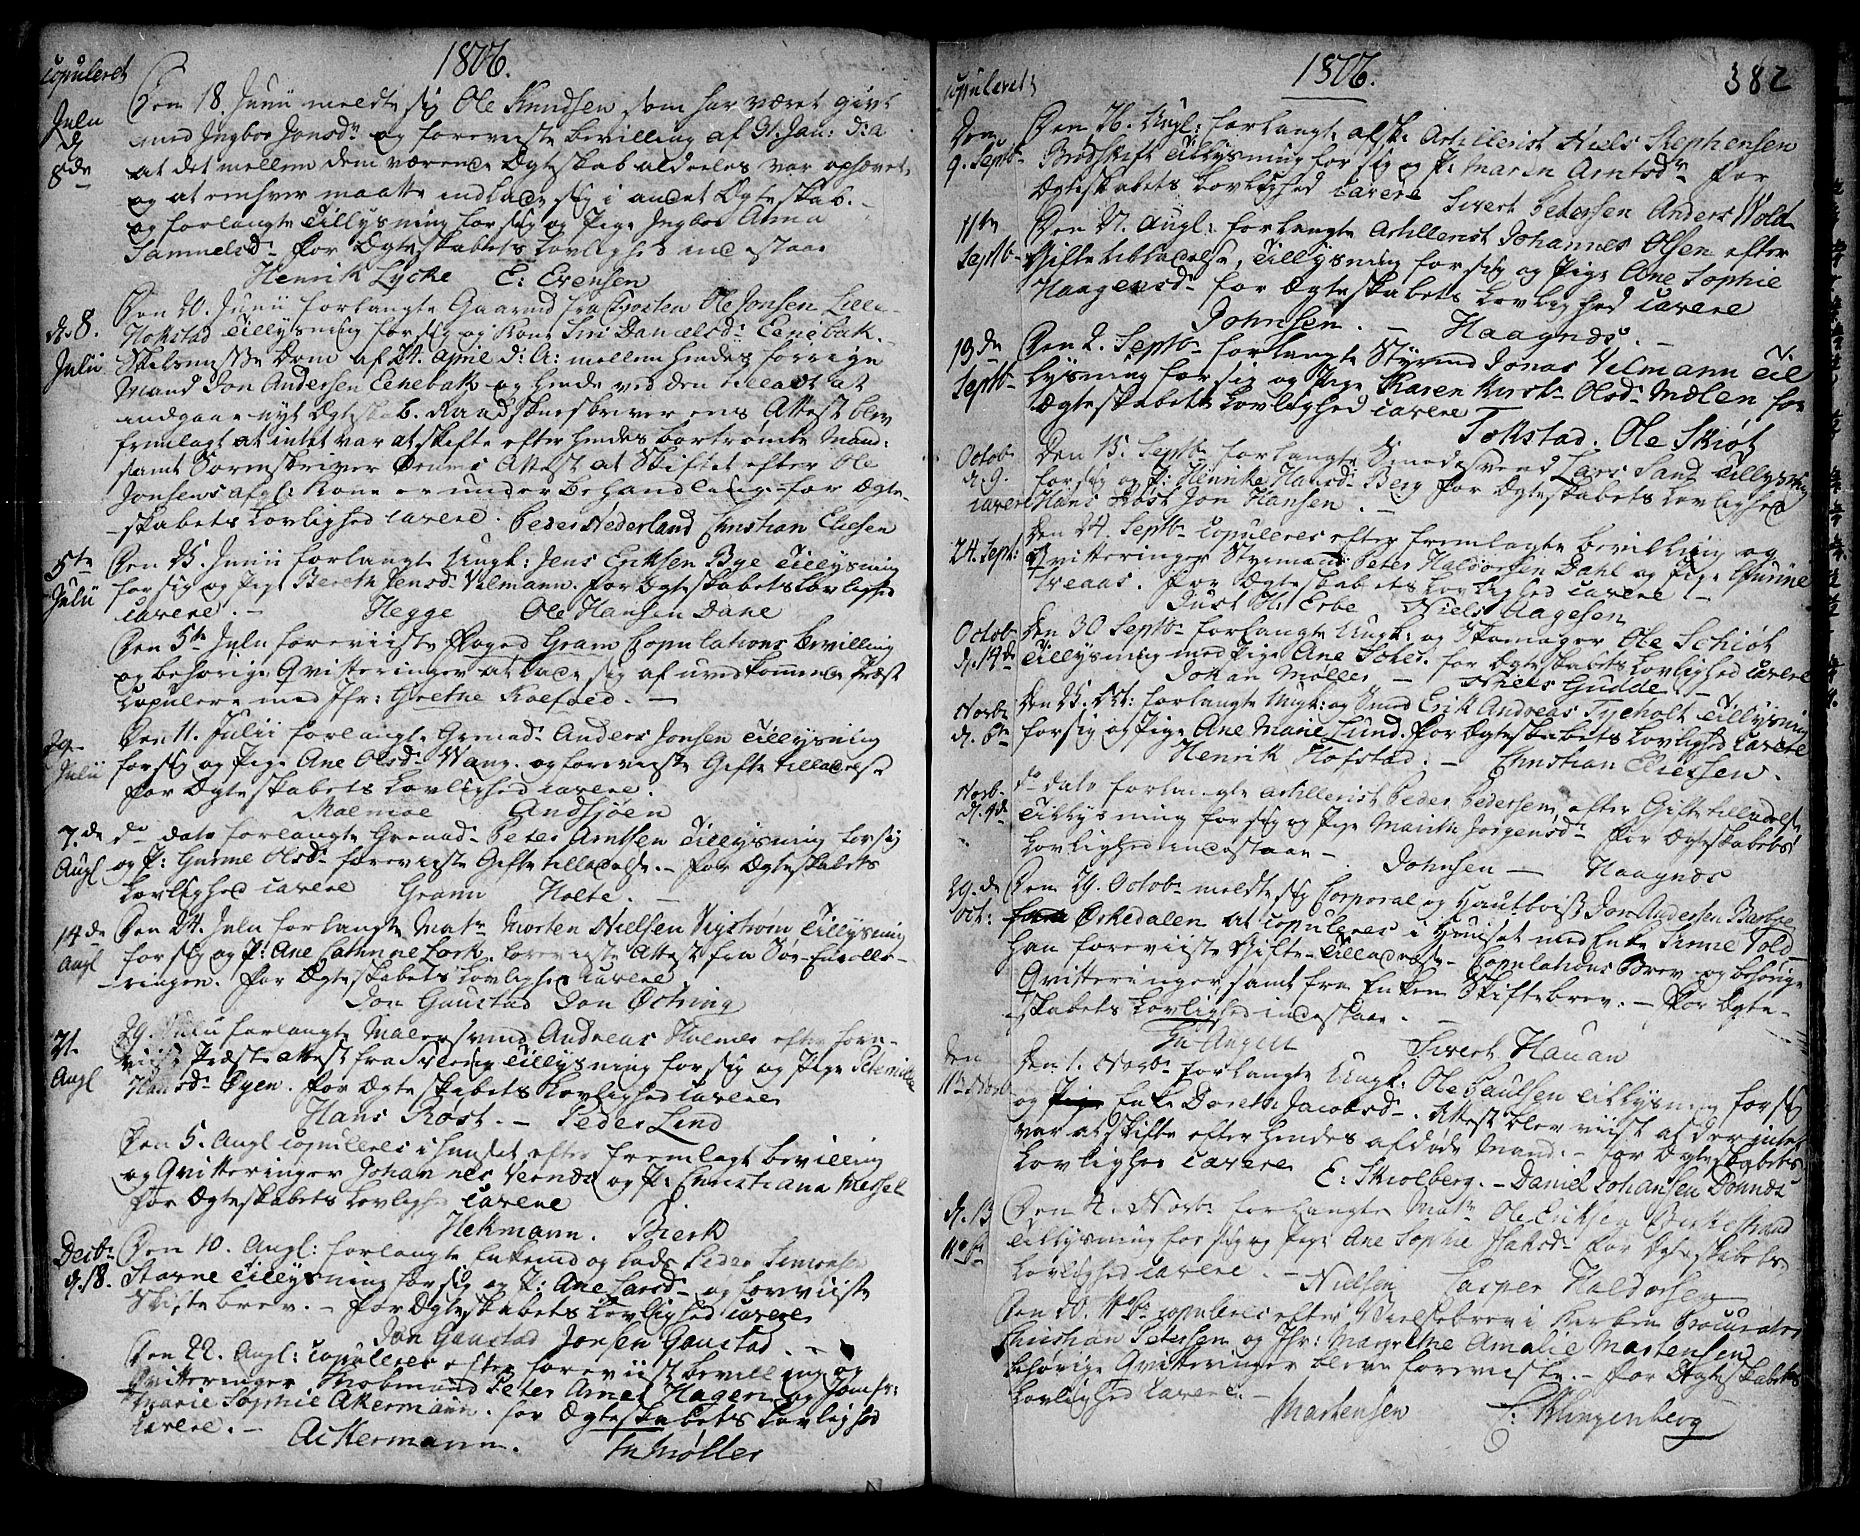 1806.
copuleret
Den 18 Junii meldte sig Ole Knudsen som har været givt
Julii
d
8de
med Ingbor Jonsdr og foreviiste bevilling af 31. Jan: d: a
at det mellem dem værende Ægteskab aldeeles var ophævet,
og at enhver maatte indlade sig i andet Ægteskab. -
og forlangte Tillysning for sig og Pige Ingbor Anna
Samuelsd. For Ægteskabets Lovlighed indestaar
Henrik Lycke E: Evensen
Den 20. Junii forlangte Gaarmd fra Ole Jonsen Lille-
d. 8.
Julii
Hokstad Tillysning for sig og Kone Siri Danielsd. Eenebak.
Skilsmisse Dom af 24. April d: A: mellem hendes forrige
Mand Jon Andersen Eenebak og hende ved den tilladt at
indgaae nyt Ægteskab. Raadstueskriverens Attest blev
fremlagt at intet var at skifte efter hendes bortrømte Mand:
samt Sorenskriver Attest at Skiftet efter Ole
Jonsens afgl: Kone er under behandling - for Ægte-
-skabets Lovlighed cavere. Peder Nederland Christian Eliesen
5te
Julii
Den 25. Junii forlangte Ungk: Jens Eriksen Bye Tillysning
for sig og Pige Bereth Jensd. Velmann. For Ægteskabets Lovlighed
cavere. - Hegge Ole Hansen Dahl
Den 5te Julii foreviiste Foged Gram Copulations bevilling
og behørige Qvitteringer at lade sig af uvedkommende Præst
copulere med Jfr: Grethe Koefoed. -
29.
Julii
Den 11. Julii forlangte Grenad. Anders Jonsen Tillysning
for sig og Pige Ane Olsd. Wang. og foreviiste Gifte tilladelse
For Ægteskabets Lovlighed cavere.
Malmoe Andsjøen
7.de
Augl
do dato forlangte Grenad. Peter Arntsen Tillysning for sig
og P: Gurine Olsd. foreviiste Gifte tilladelse. - For Ægteskabets
Lovlighed cavere Gramm Holte. -
14de
Augl
Den 24. Julii forlangte Matr. Morten Nielsen Vigstrøm Tillysning
for sig og P: Ane Cathrine Lork. foreviiste Attest fra Søe-Enrolle-
-ringen. For Ægteskabets Lovlighed cavere
Jon Gaustad Jon Østring
21.
Augl
29. Julii forlangte Malersvend Andreas Holmer efter fore-
viist Præste attest fra Tillysning for sig og Pige
Hansd. Øyen. For Ægteskabets Lovlighed cavere
Hans Rost. - Peder Lind
Den 5. Augl copuleres i huuset efter fremlagt bevilling
og Qvitteringer Johannes Wernds og P: Christiana Messel
For Ægteskabets Lovlighed cavere
Hekmann. Bierk
Decbr
d. 18.
Den 10. Augl: forlangte Enkemd og Lods Peder Simonsen
Stavne Tillysning for sig og P: Ane Larsd. og foreviiste
Skiftebrev. - For Ægteskabets Lovlighed cavere
Jon Gaustad Jonsen Gaustad. -
Den 22. Augl: copuleres efter foreviist bevilling og
Qvitteringer Peter Arnet Hagen og Jomfr:
Marie Sophie Akermann. for Ægteskabets Lovlighed
cavere. - Ackermann. Møller
1806.
382
copuleret
Den
9. Septbr
Den 26. Augl: forlangte afsk: Artillerist Niels Stephensen
Brodskift Tillysning for sig og P: Maren Arntsdr. For
Ægteskabets Lovlighed cavere Sivert Petersen Anders Wold
11te
Septbr
Den 27. Augl: forlangte Artillerist Johannes Olsen efter
Gifte tilladelse, Tillysning for sig og Pige Ane Sophie
Haagensd. for Ægteskabets Lovlighed cavere
Johnsen. - Haagnds. -
13de
Septbr
Den 2. Septbr forlangte Styrmd Jonas Velmann Til
lysning for sig og Pige Karen Olsd. Mælen for
Ægteskabets Lovlighed cavere
Tokstad. Ole Skiøt
Octobr
d. 9.
Den 15. Septbr forlangte Smedesvend Lars Sand Tillysning
for sig og P: Henrike Hansd. Berg For Ægteskabets Lovlighed
cavere Hans Rost Jon Hansen. -
24. Sept:
Den 24. Septbr copuleres efter fremlagte bevilling og
Qvitteringer Styrmand Peter Haldorsen Dahl og Pige Gunnil
For Ægteskabets Lovlighed cavere -
Just H: Erbe Niels Aagesen
Octobr
d. 14de
Den 30 Septbr forlangte Ungk: og Skomager Ole Schiøt
Tillysning med Pige Ane for Ægteskabets Lovlighed cavere
Johan Møller - Niels Gudde -
Novbr
d. 6te
Den 25. Oct: forlangte Ungk: og Smed Erik Andreas Tyeholt Tillysning
for sig og Pige Ane Marie Lund. For Ægteskabets Lovlighed cavere
Henrik Hofstad. - Christian Eliesen.
Novbr
d. 9de
do dato forlangte artillerist Peder Pedersen efter Gifte tilladelse
Tillysning for sig og Pige Marith Jørgensd. For Ægteskabets
Lovlighed indestaar - Johnsen - Haagnds
29.de
Oct:
Den 29. Octobr meldte sig Corporal og Hautboist Jon Andersen
Ørkedalen at copuleres i Huuset med Enke Sinne Vold
han foreviiste Gifte-Tilladelse - Copulations Brev - og behørige
Qvitteringer samt fra Enken Skiftebrev. - For Ægte-
-skabets Lovlighed indestaar. -
Angell Sivert Hauan
Den
11te Novbr
Den 1. Novbr forlangte Ungk: Ole Paulsen Tillysning for sig
og Enke Doreth Jacobsd. Attest blev viist at der intet
var at skifte efter hendes afdøde Mand. - for Ægteskabets
Lovlighed cavere E. Skiolberg. - Daniel Johansen
d. 13
Den 4. Novbr forlangte Matr. Ole Eriksen
Tillysning for sig og Pige Ane Sophie Isaksd. For Ægteskabets
Lovlighed cavere. - Nielsen Casper Haldorsen
Den 20. Novbr copuleres efter Vielsebrev i Kirken Procurator
Christian Petersen og Jfr: Margrethe Amalie Martensen
behørige Qvitteringer bleve foreviiste. - For Ægteskabets
Lovlighed cavere. - Martensen C: Klingenberg